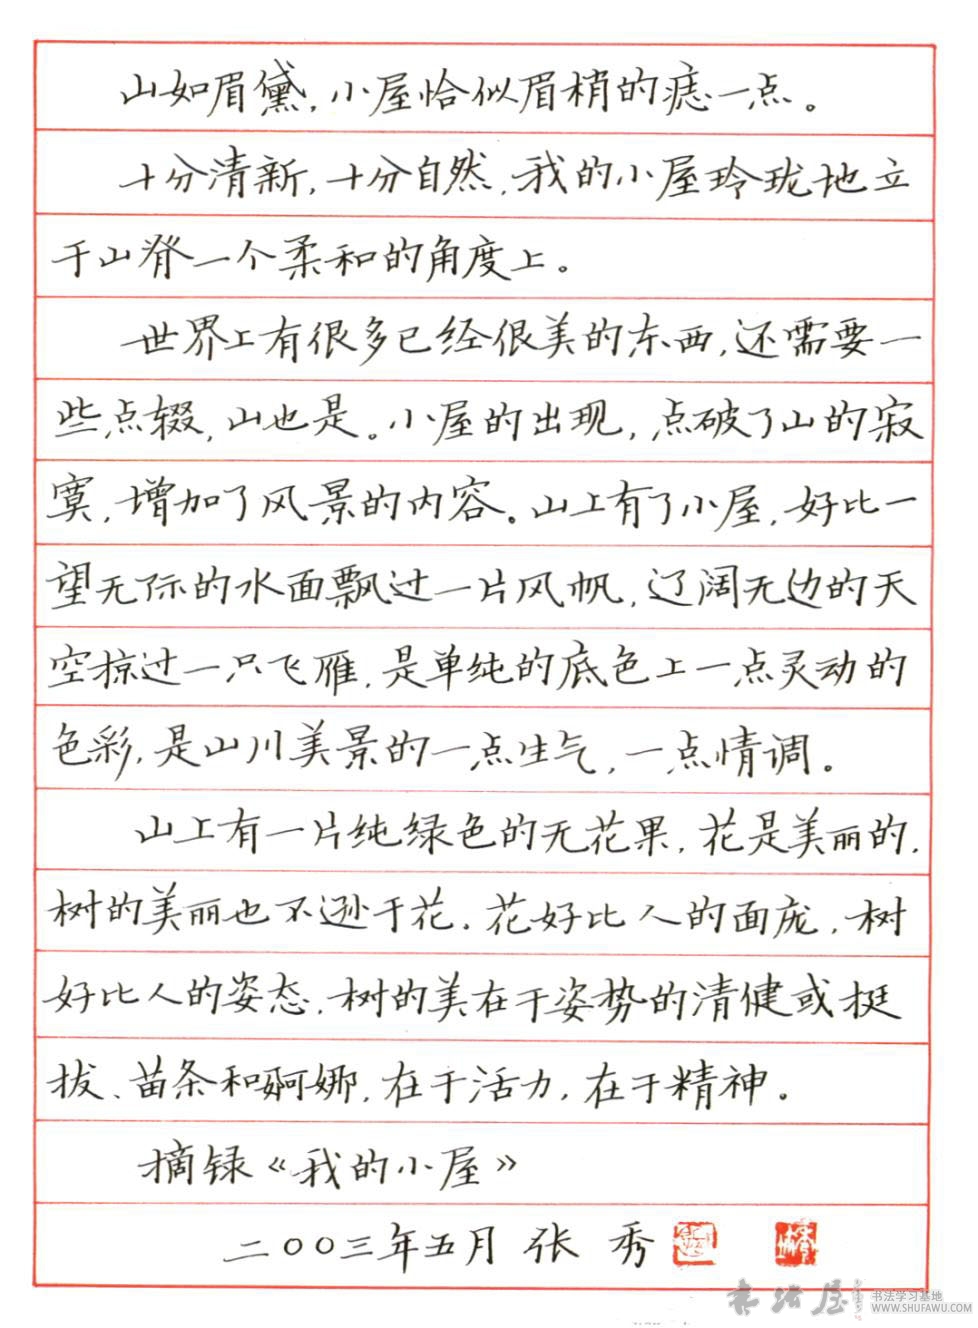 山如眉黛，小屋恰似眉梢的痣一点。
十分清新，十分自然，我的小屋玲珑地立
于山脊一个柔和的角度上。
世界上有很多已经很美的东西，还需要一
些点缀，山也是。小屋的出现，点破了山的寂
寞，增加了风景的内容。山上有了小屋，好比一
望无际的水面飘过一片风帆，辽阔无边的天
空掠过一只飞雁，是单纯的底色上一点灵动的
色彩，是山川美景的一点生气，一点情调。
山上有一片纯绿色的无花果，花是美丽的，
树的美丽也不逊于花。花好比人的面庞，树
好比人的姿态。树的美在于姿势的清健或挺
拔、苗条和婀娜，在于活力，在于精神。
摘録《我的小屋》
二〇〇三年五月 张 秀
书法屋
书法学习基地
WWW.SHUFAWU.COM